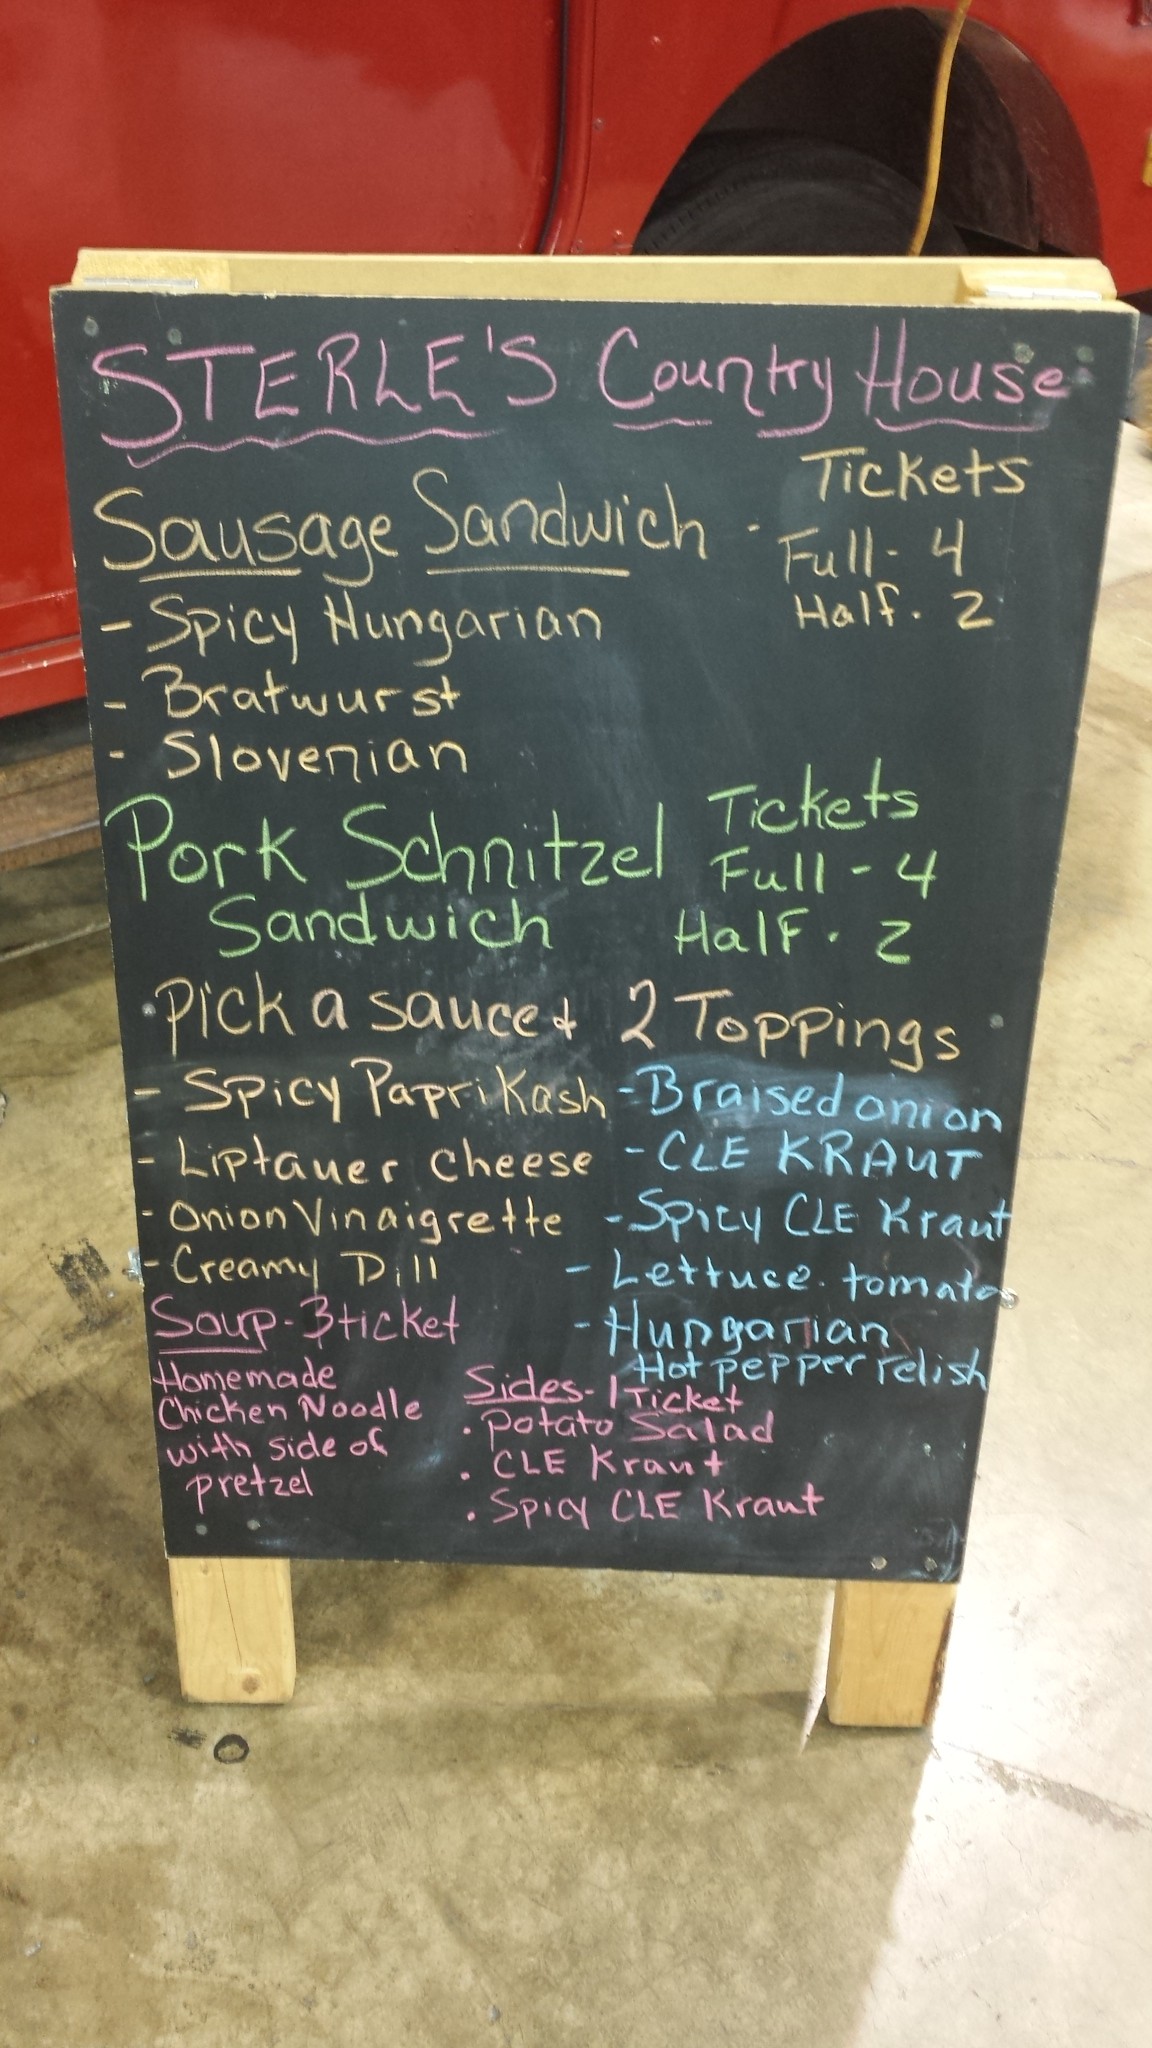 STERLE'S Country House
Sausage Sandwich - Tickets
Full - 4
Half - 2
- Spicy Hungarian
- Bratwurst
- Slovenian
Pork Schnitzel Sandwich
Tickets
Full - 4
Half - 2
Pick a sauce + 2 Toppings
- Spicy Paprikash
- Liptauer Cheese
- Onion Vinaigrette
- Creamy Dill
- Braised onion
- CLE KRAUT
- Spicy CLE Kraut
- Lettuce - tomato
- Hungarian
Hot pepper relish
Soup - 3 ticket
Homemade
Chicken Noodle
with side of
pretzel
Sides - 1 Ticket
• Potato Salad
• CLE Kraut
• Spicy CLE Kraut